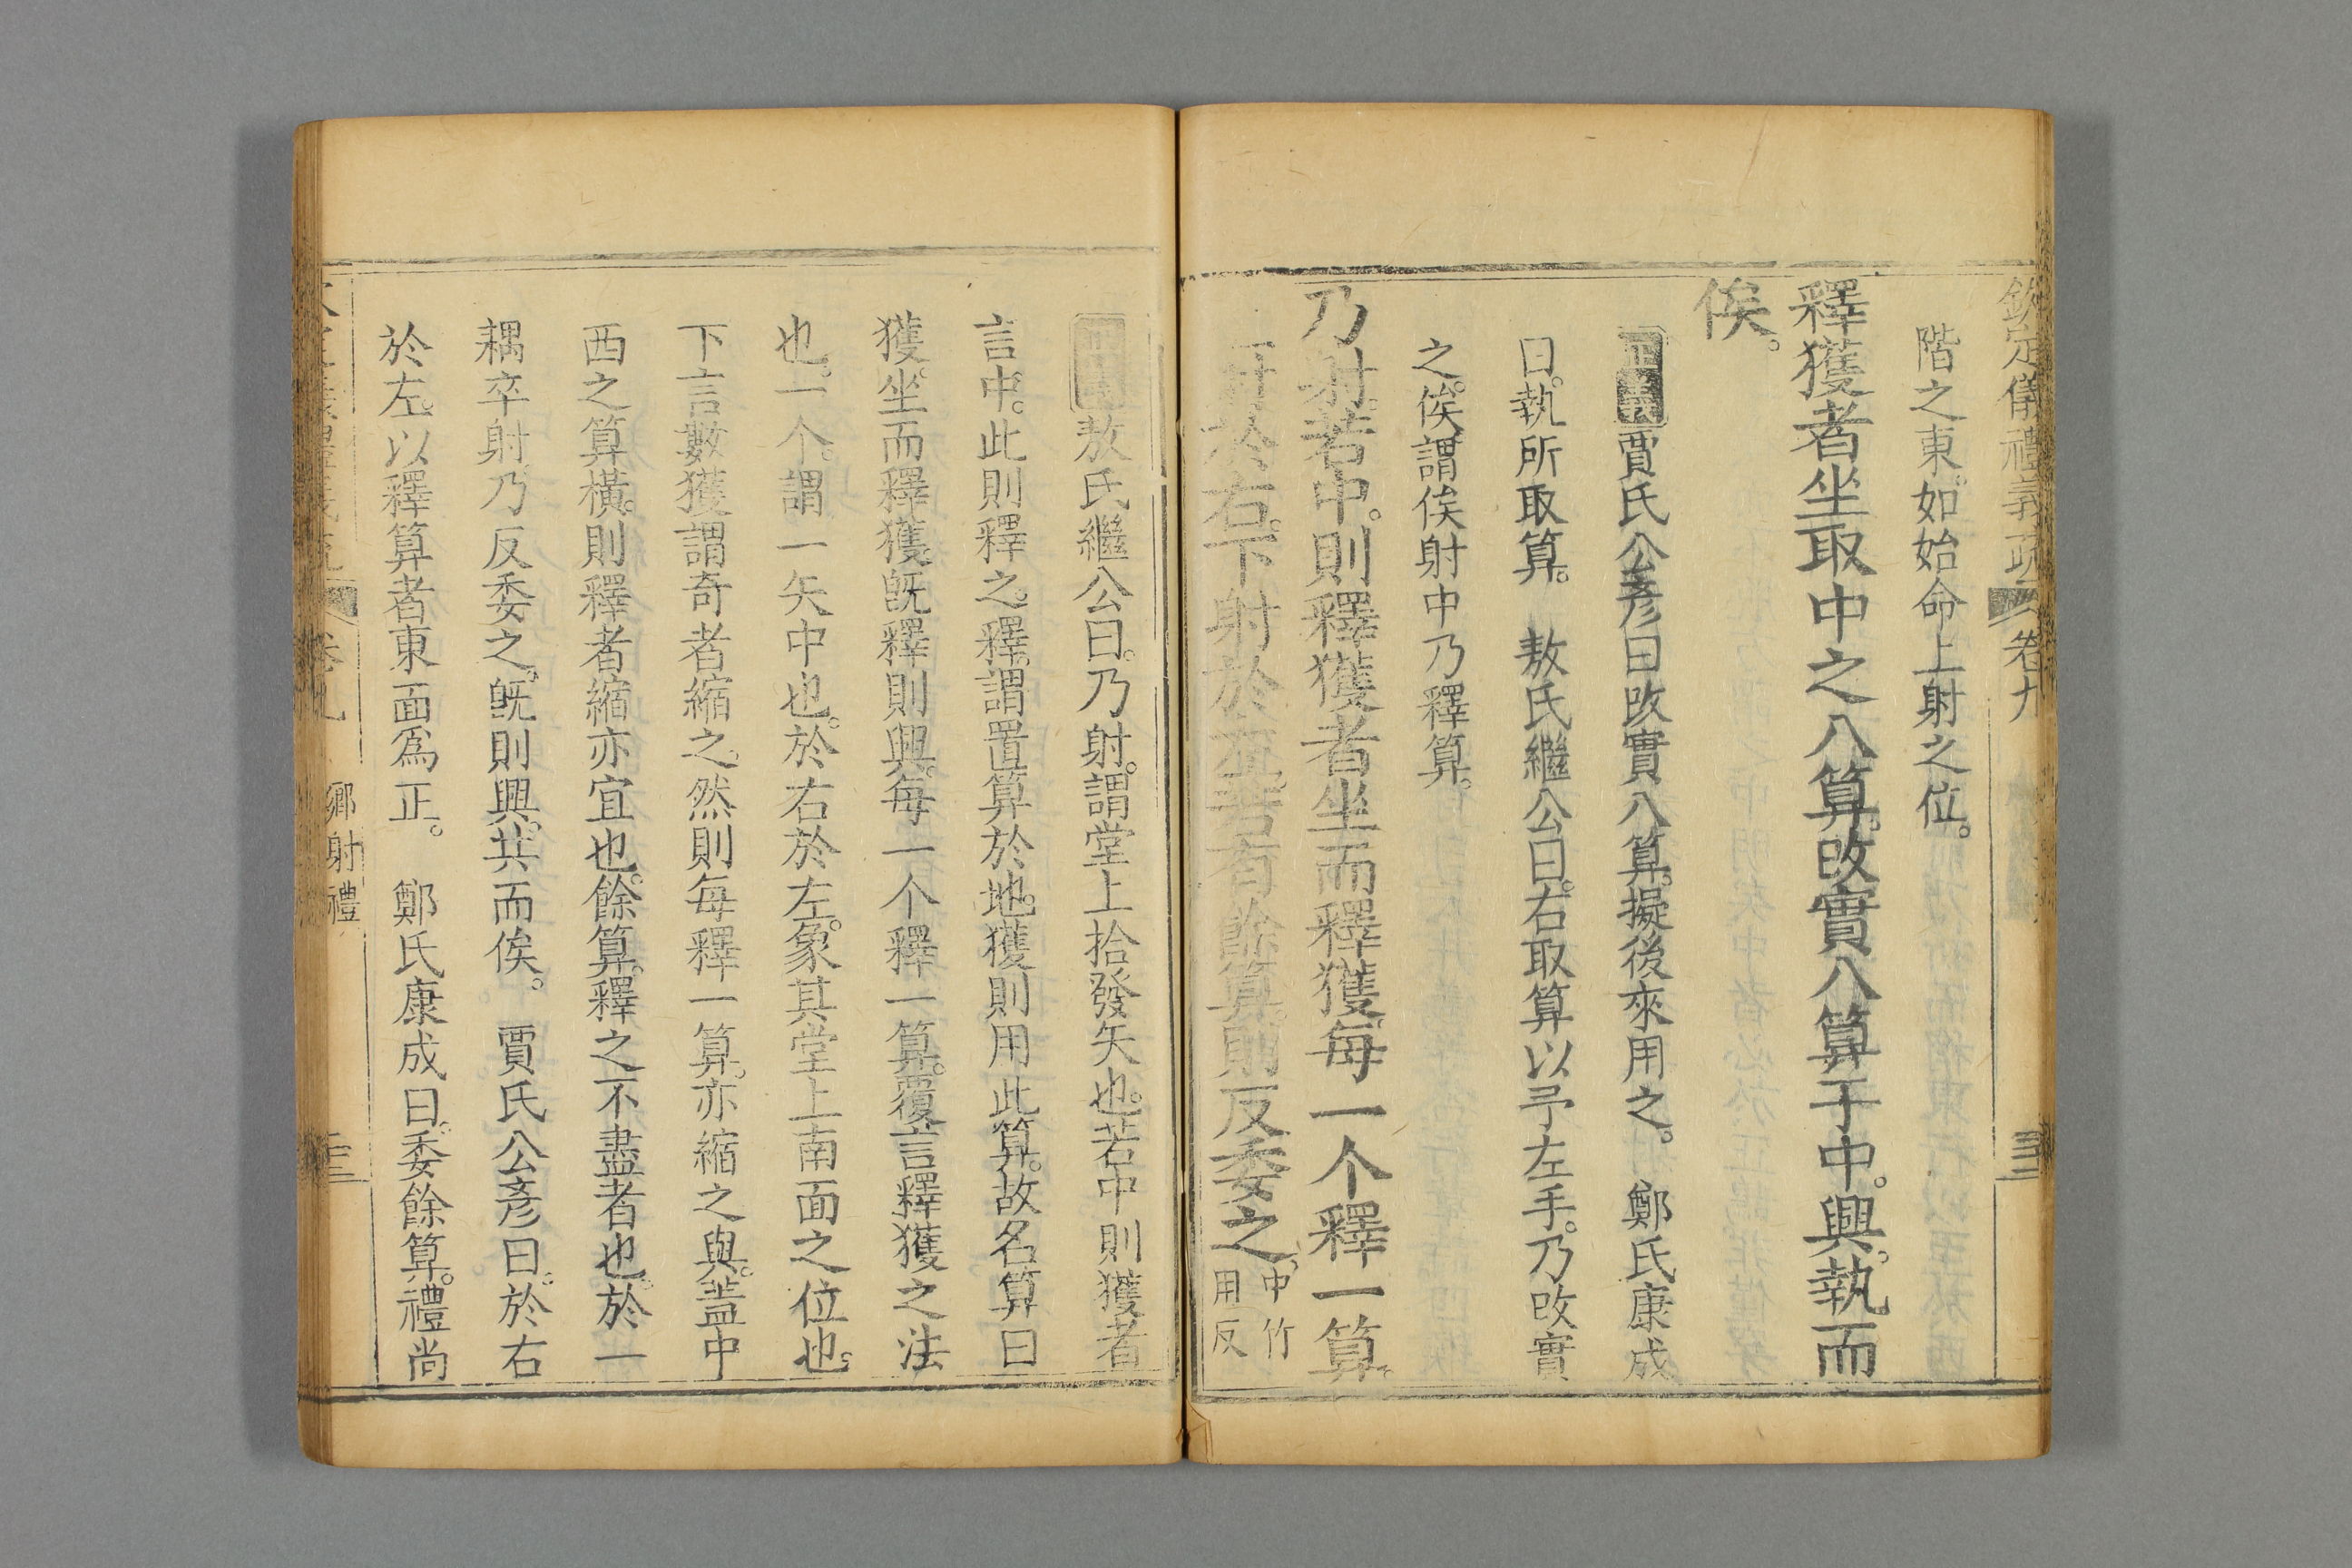 欽定儀禮義疏 卷九
階之東。如始命上射之位。
釋獲者坐取中之八算。改實八算于中。興。執而
俟。
正義賈氏公彥曰改實八算。擬後來用之。 鄭氏康成
曰。執所取算。 敖氏繼公曰。右取算以予左手。乃改實
之。俟謂俟射中乃釋算。
乃射。若中。則釋獲者坐而釋獲。每一个釋一算。
上射於右。下射於左。若有餘算。則反委之。中竹
用反
敖氏繼公曰。乃射。謂堂上拾發矢也。若中則獲者
言中。此則釋之。釋。謂置算於地。獲則用此算。故名算曰
獲。坐而釋獲。旣釋則興。每一个釋一算。覆言釋獲之法
也。一个。謂一矢中也。於右於左。象其堂上南面之位也。
下言數獲謂奇者縮之。然則每釋一算。亦縮之與。蓋中
西之算橫。則釋者縮亦宜也。餘算。釋之不盡者也。於一
耦卒射乃反委之。旣則興。共而俟。 賈氏公彥曰。於右
於左。以釋算者東面爲正。 鄭氏康成曰。委餘算。禮尚
卷九 鄉射禮